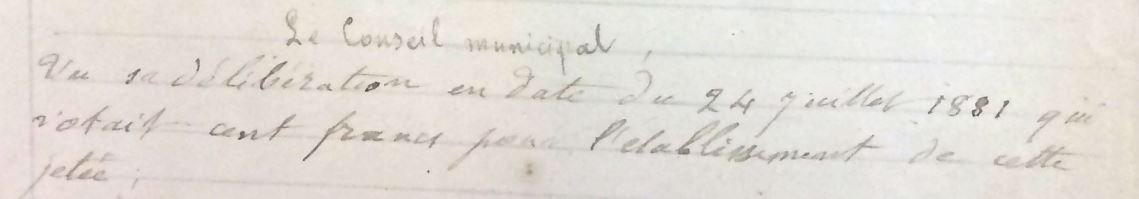 Le Conseil municipal,
Vu sa délibération en date du 24 juillet 1881 qui
votait cent francs pour l'etablissement de cette
jetée,